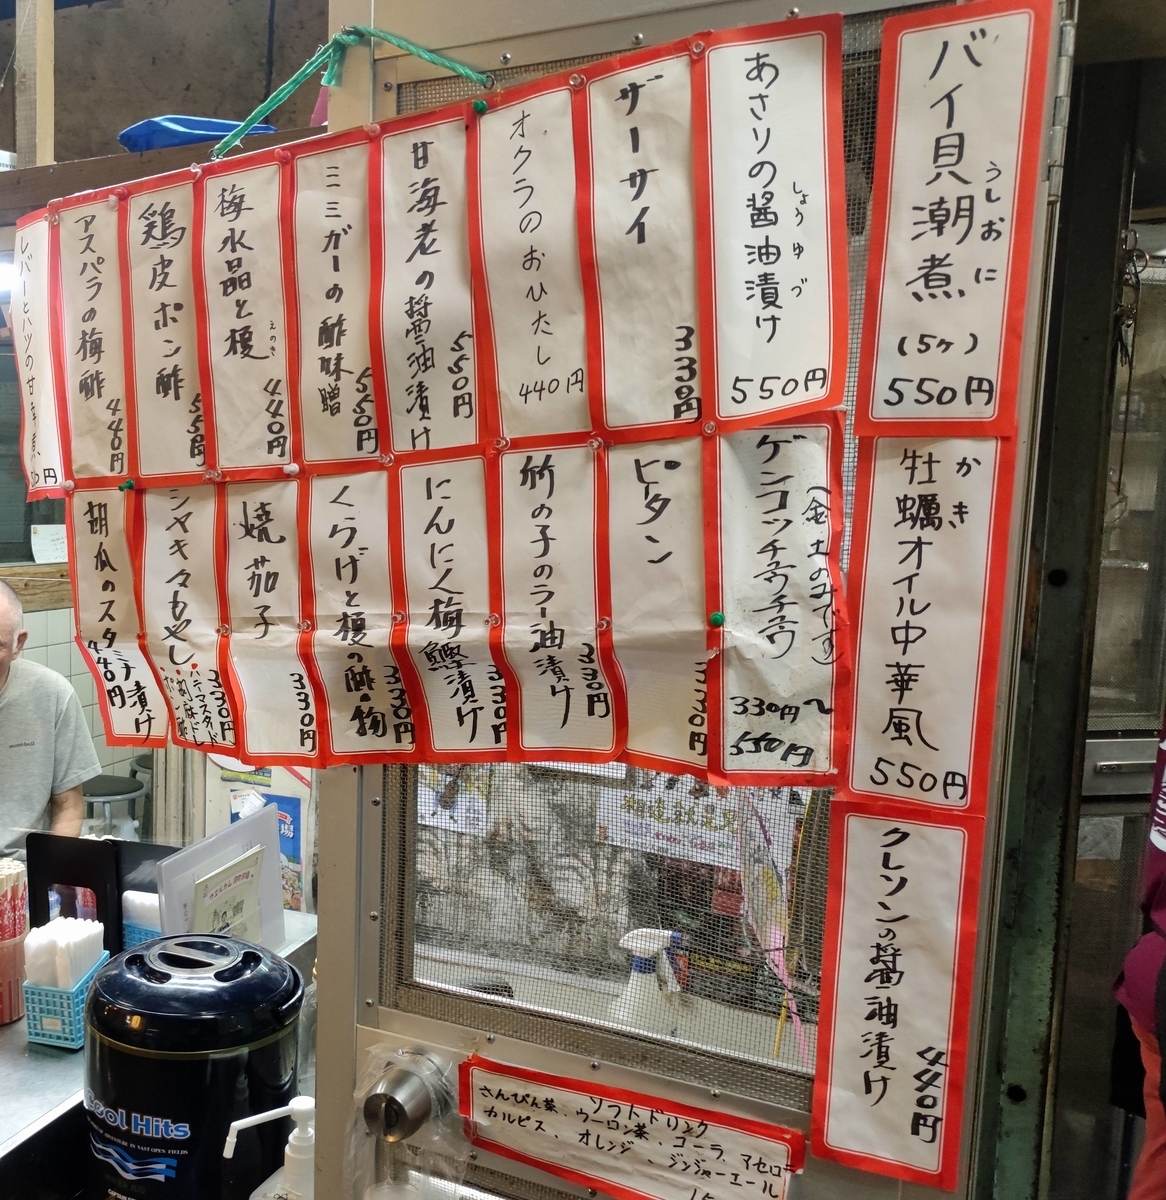 バイ貝潮煮
うしおに
(5ヶ)
550円
あさりの醤油漬け
しょうゆづ
550円
ザーサイ
330円
オクラのおひたし
440円
甘海老の醤油漬け
550円
ミミガーの酢味噌
550円
梅水晶と榎
えのき
440円
鶏皮ポン酢
550円
アスパラの梅酢
440円
レバーとハツの甘辛煮
牡蠣オイル中華風
かき
550円
ゲンコッチョウチョウ
(金土のみです)
330円〜
550円
ピータン
330円
竹の子のラー油漬け
330円
にんにく梅鰹漬け
330円
くらげと榎の酢の物
330円
焼茄子
330円
シャキ々もやし
330円
・ハニーマスタード
・胡麻だし
・ポン酢
胡瓜のスタミナ漬け
440円
クレソンの醤油漬け
440円
ソフトドリンク
さんぴん茶、ウーロン茶、コーラ、アセロラ
カルピス、オレンジ、ジンジャーエール
Cool Hits